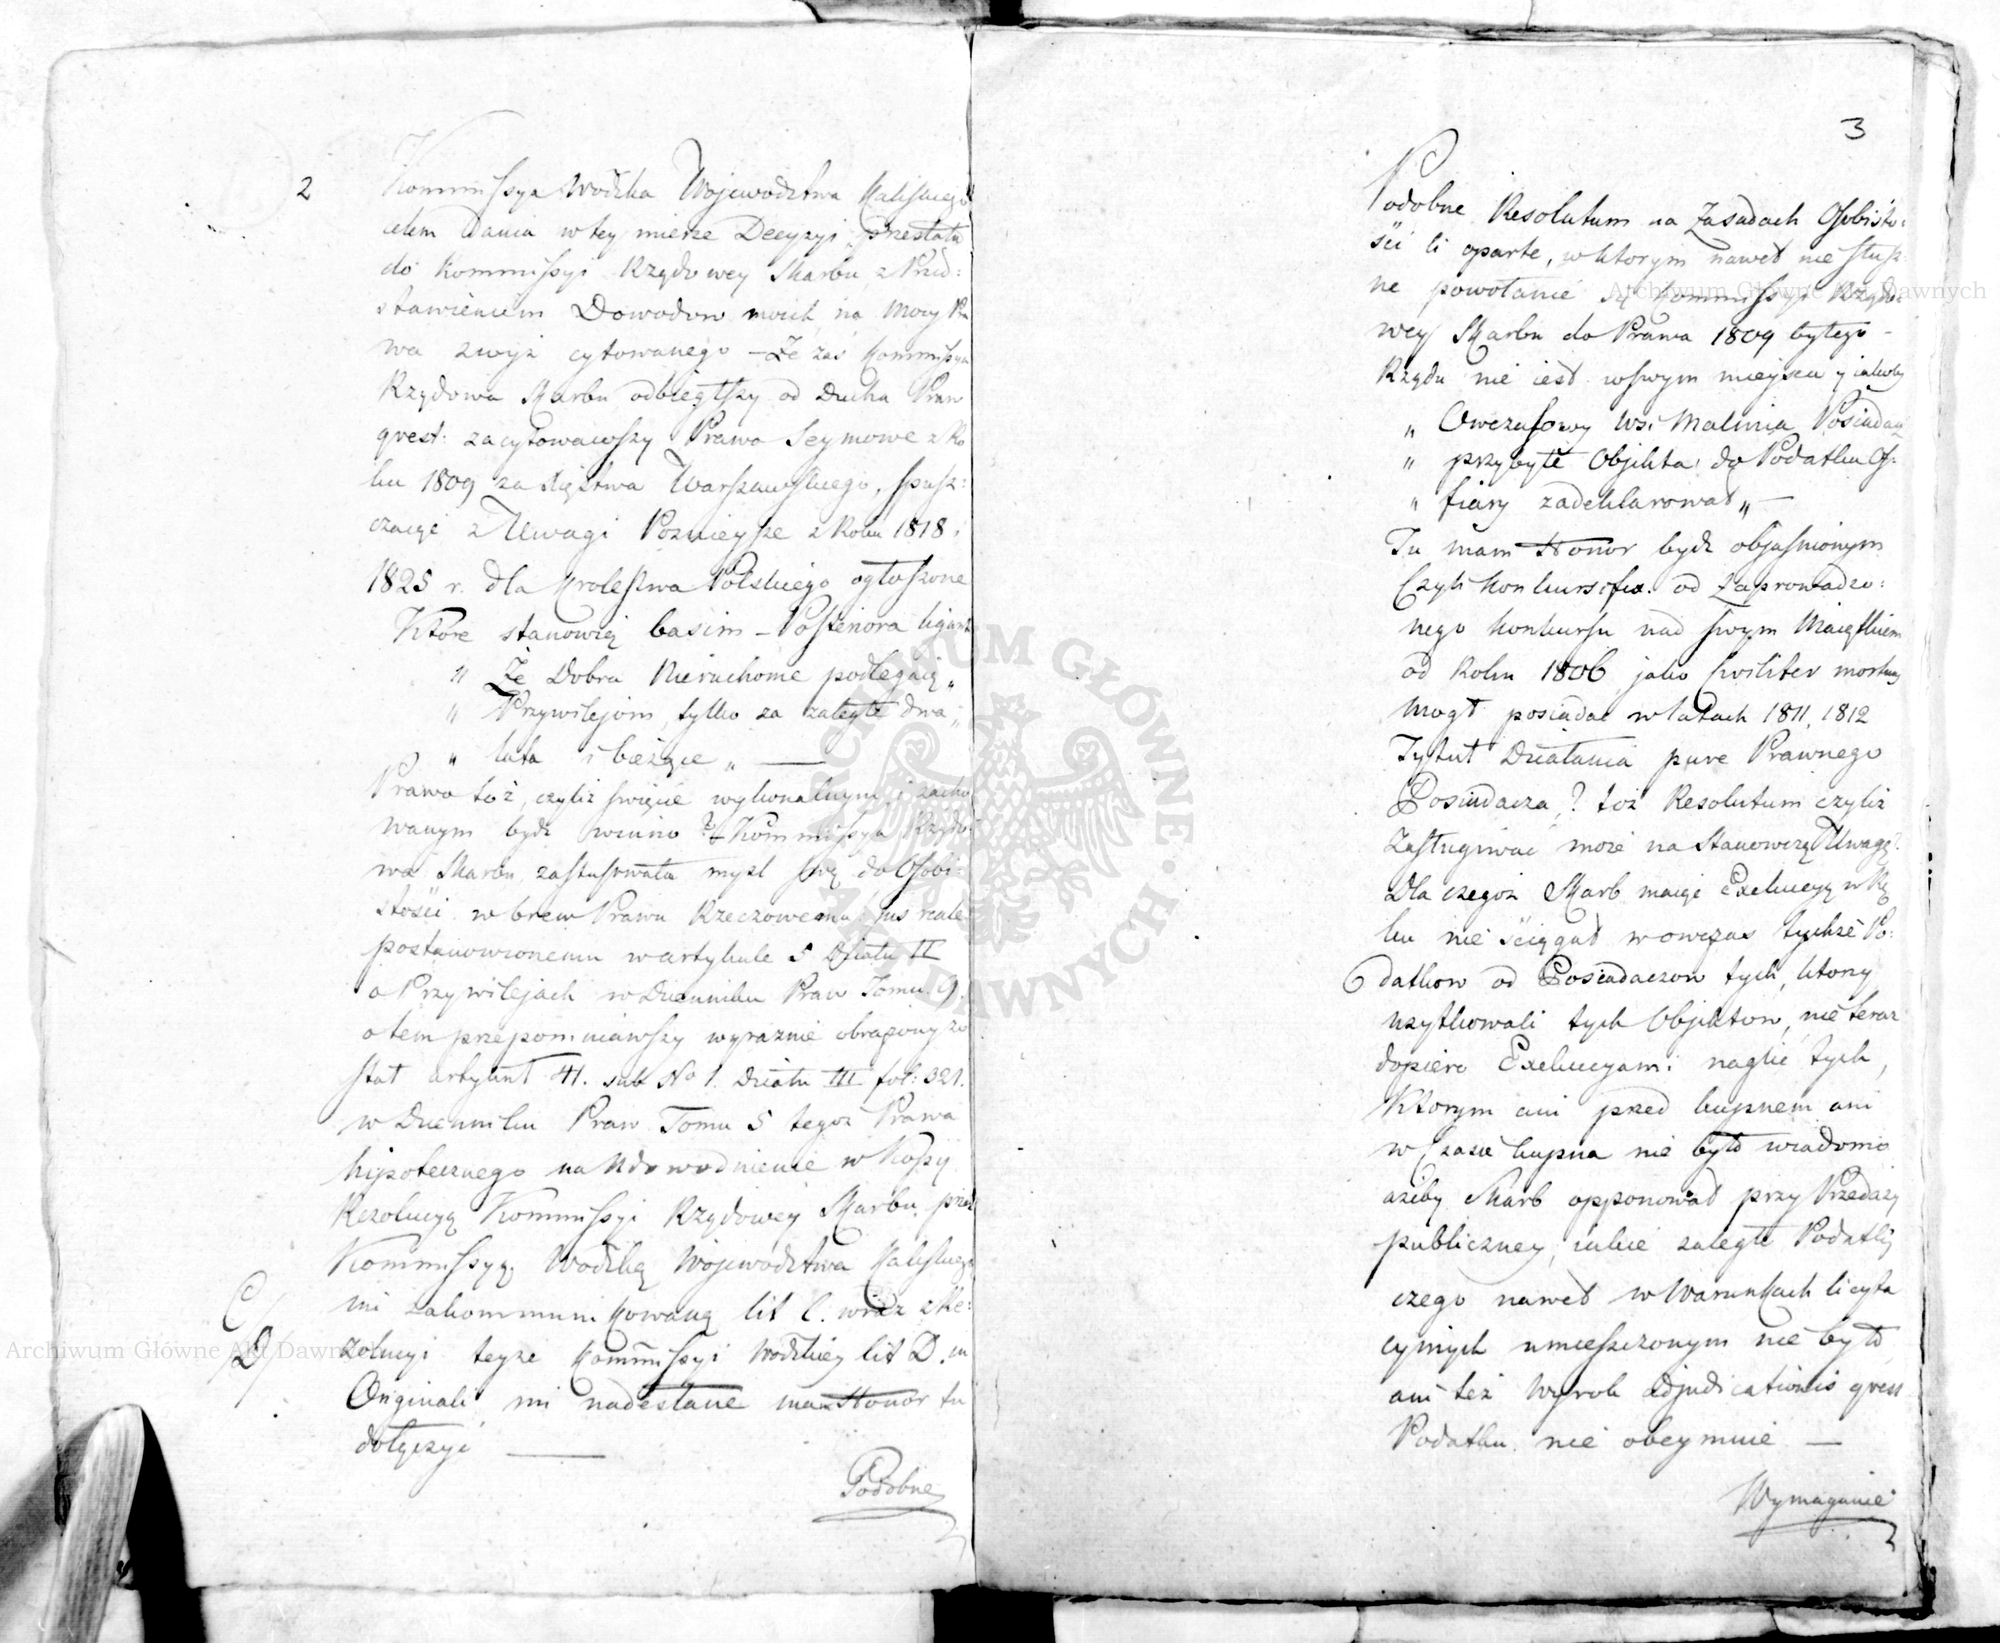 2
Kommissya Wodzka Wojewodztwa Kaliskiego
celem dania w tey mierze Decyzyi przesłała
do Kommissyi Rządowey Skarbu z Przed:
stawieniem Dowodow moich na mocy Pra
wa zwyż cytowanego – Że zaś Kommissya
Rządowa Skarbu odbiegłszy od Ducha Praw
quest: zacytowawszy Prawo Seymowe z Ro
ku 1809 za Xięstwa Warszawskiego, spusz:
czaiąc z Uwagi Poznieysze z Roku 1818 i
1825 r. dla Krolestwa Polskiego ogłoszone
Ktore stanowią basim – Posteriora ligant
„ Że Dobra Nieruchome podlegaią „
„ Przywilejom tylko za zaległe dwa „
„ lata i bieżące „ —
Prawo toż, czyliż swięcie wykonalnym i zacho
wanym bydz winno? – Kommissya Rządo
wa Skarbu zastosowała mysl swą do Osobi:
stości wbrew Prawu Rzeczowemu jus reale
postanowionemu w artykule 5 Działu II
o Przywilejach w Dzienniku Praw Tomu 9.
o tem przepomniawszy wyraznie obrażony zo
stał artykuł 41. sub No 1. Działu III fol: 321.
w Dzienniku Praw Tomu 5 tegoż Prawa
hipotecznego na Udowodnienie w Kopij
Rezolucyą Kommissyi Rządowey Skarbu, przez
Kommissyą Wodzką Wojewodztwa Kaliskiego
mi zakommunikowaną lit C. wraz z Re:
zolucyi teyże Kommissyi Wodzkiey lit D. in
Originali mi nadesłane mam Honor tu
dołączyć —
C/
D/
Podobne
3
Podobne Resolutum na Zasadach Osobisto:
ści li oparte, w ktorym nawet nie słusz:
ne powołanie się Kommissyi Rządo:
wey Skarbu do Prawa 1809 byłego –
Rządu nie iest w swym mieyscu y iakoby
„ Owczasowy Wsi Malinia Posiadacz
„ przybyłe Objekta do Podatku Of:
„ fiary zadeklarował „ —
Tu mam Honor bydz objasnionym
Czyli Konkursifex od Zaprowadzo:
nego Konkursu nad swym Maiątkiem
od Roku 1806 jako Civiliter mortuus
mogł posiadac w latach 1811, 1812
Tytuł Działania pure Prawnego
Posiadacza? toż Resolutum czyliż
Zasługiwać może na Stanowczą Uwagę?
Dla czegoż Skarb maiąc Exekucyą w Rę
ku nie ściągał wowczas tychże Po:
datkow od Posiadaczow tych, ktorzy
uzytkowali tych Objektow, nie teraz
dopiero Exekucyami naglić tych,
Ktorym ani przed kupnem ani
w Czasie kupna nie było wiadomo
ażeby Skarb opponował przy Przedaży
publiczney, iakie zaległe Podatki
czego nawet w Warunkach licyta
cyinych umieszczonym nie było
ani też Wyrok adjudicationis quest
Podatku nie obeymuie —
Wymaganie
Archiwum Główne Akt Dawnych
Archiwum Główne Akt Dawnych
ARCHIWUM GŁÓWNE AKT DAWNYCH